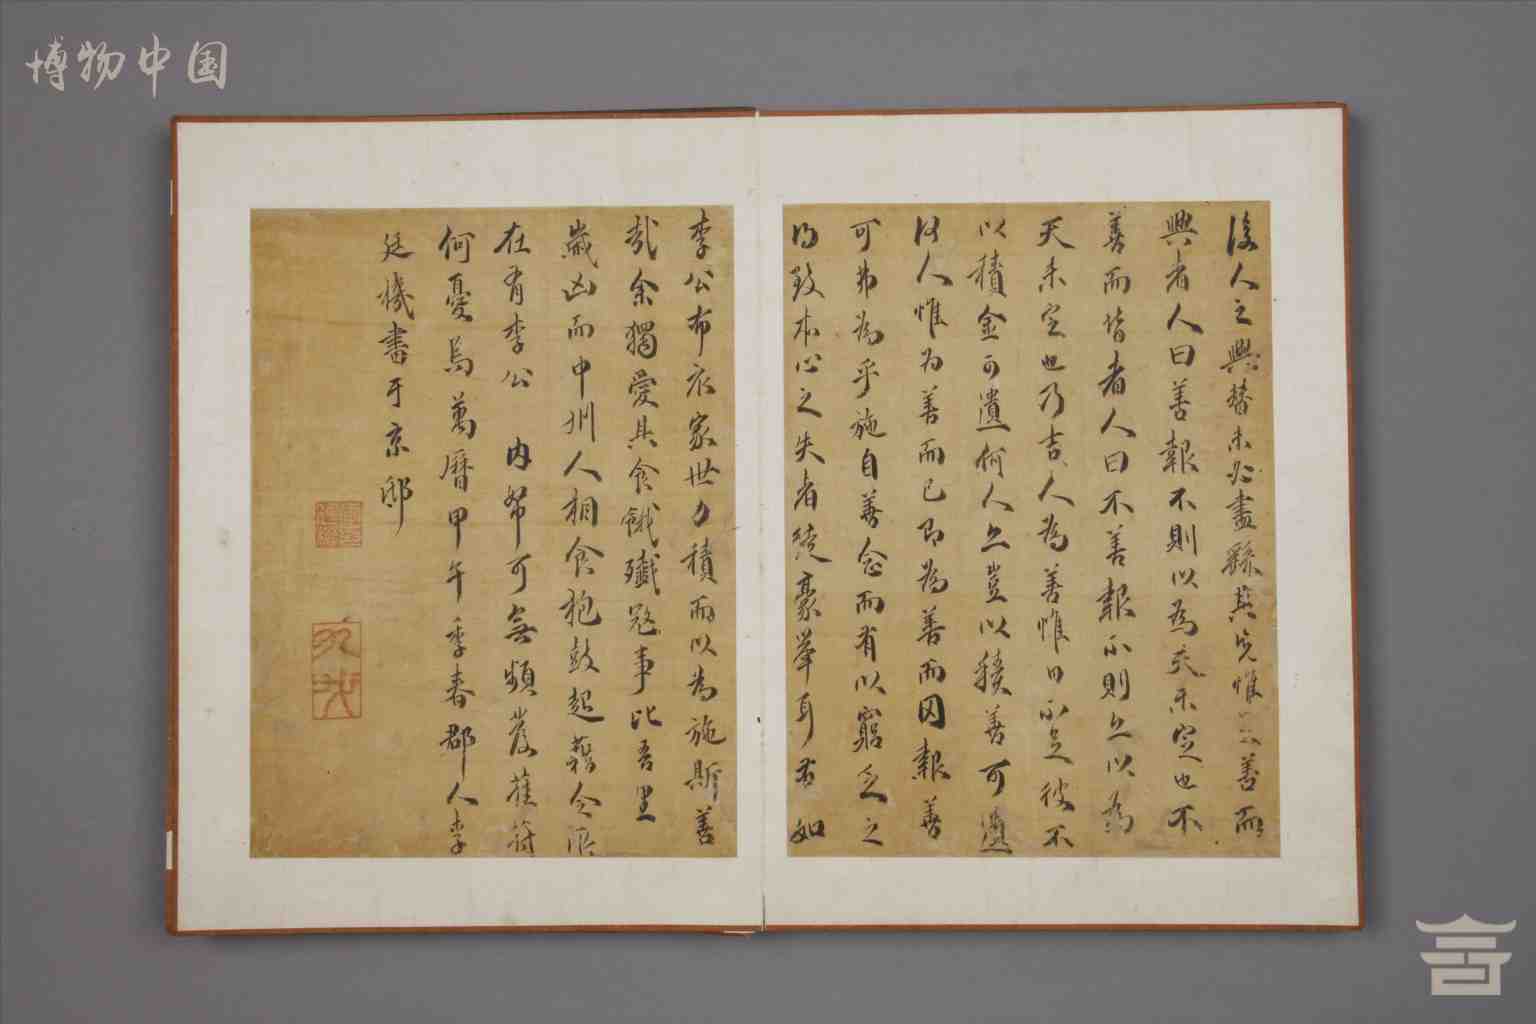 博物中国
後人之興替未必盡繇其先惟以善而
興者人曰善報不則以為天未定也不
善而皆者人曰不善報不則亦以為
天未定也乃吉人為善惟日不足彼不
以積金可遺何人亦豈以積善可遺
後人惟为善而已即為善而因報善
可弗為乎施自善念而有以窮乏之
得致本心之失者徒豪舉耳若如
李公布衣家世力積而以為施斯善
哉余獨愛其食餓殲寇事比吾里
歲凶而中州人相食枹鼓起藉令派
在有李公 内帑可無頻發萑苻
何憂焉萬曆甲午季春郡人李
廷機書于京邸